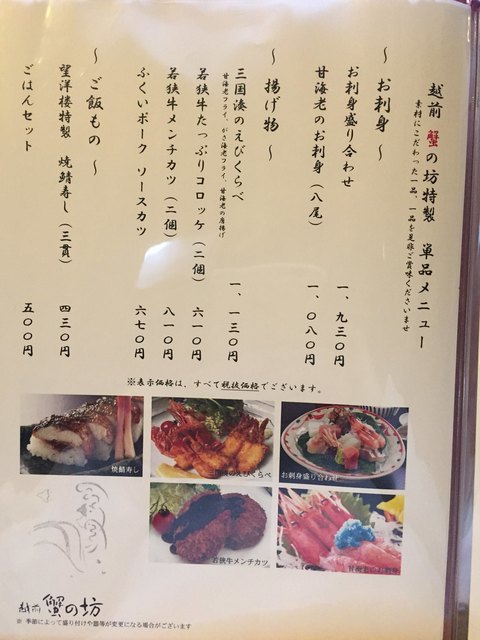 越前 蟹の坊特製 単品メニュー
素材にこだわった一品、一品を是非ご賞味くださいませ
～ お刺身 ～
お刺身盛り合わせ 一、九三〇円
甘海老のお刺身（八尾） 一、〇八〇円
～ 揚げ物 ～
三国湊のえびくらべ 一、一三〇円
甘海老フライ、がさ海老フライ、甘海老の唐揚げ
若狭牛たっぷりコロッケ（二個） 六一〇円
若狭牛メンチカツ（二個） 八一〇円
ふくいポーク ソースカツ 六七〇円
～ ご飯もの ～
望洋楼特製 焼鯖寿し（三貫） 四三〇円
ごはんセット 五〇〇円
※表示価格は、すべて税抜価格でございます。
焼鯖寿し
えびくらべ
お刺身盛り合わせ
若狭牛メンチカツ
甘海老のお刺身
越前 蟹の坊
※ 季節によって盛り付けや器等が変更になる場合がございます